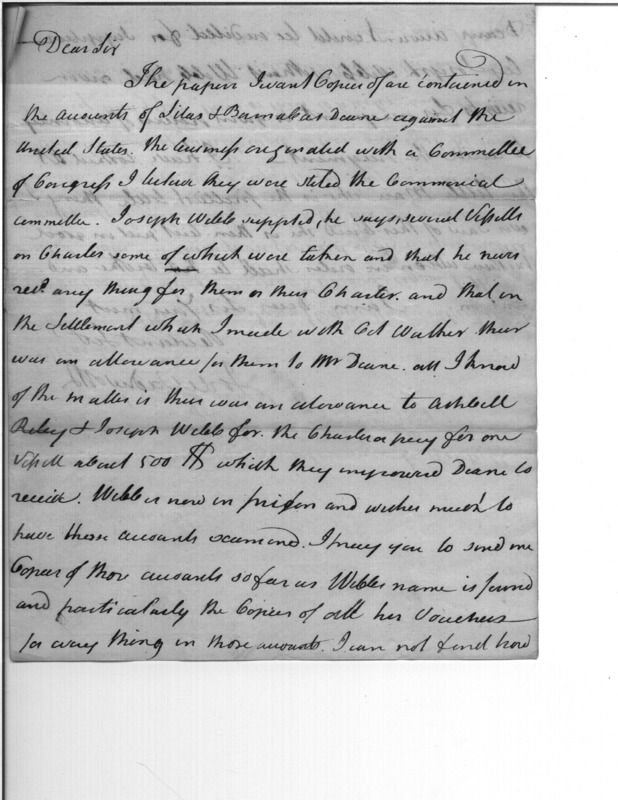 Dear Sir
The papers I want Copies of are contained in
the accounts of Silas & Barnabas Deane against the
United States. the business originated with a Committee
of Congress I beleive they were stiled the Commercial
committee. Joseph Webb supplyed, he says, several Vessells
on Charter some of which were taken and that he never
recd any thing for them or their Charter. and that in
the Settlement which I made with Col Walker their
was an allowance for them to Mr Deane. all I know
of the matter is their was an alowance to Ashbell
Riley & Joseph Webb for the Charter a pary for one
Vessell about 500 which they impowered Deane to
receive. Webb is now in prison and wishes much to
have these accounts examend. I pray you to send me
Copies of those accounts so far as Webbs name is found
and particularly the Copies of all his Vouchers
for every thing in those accounts. I can not find how